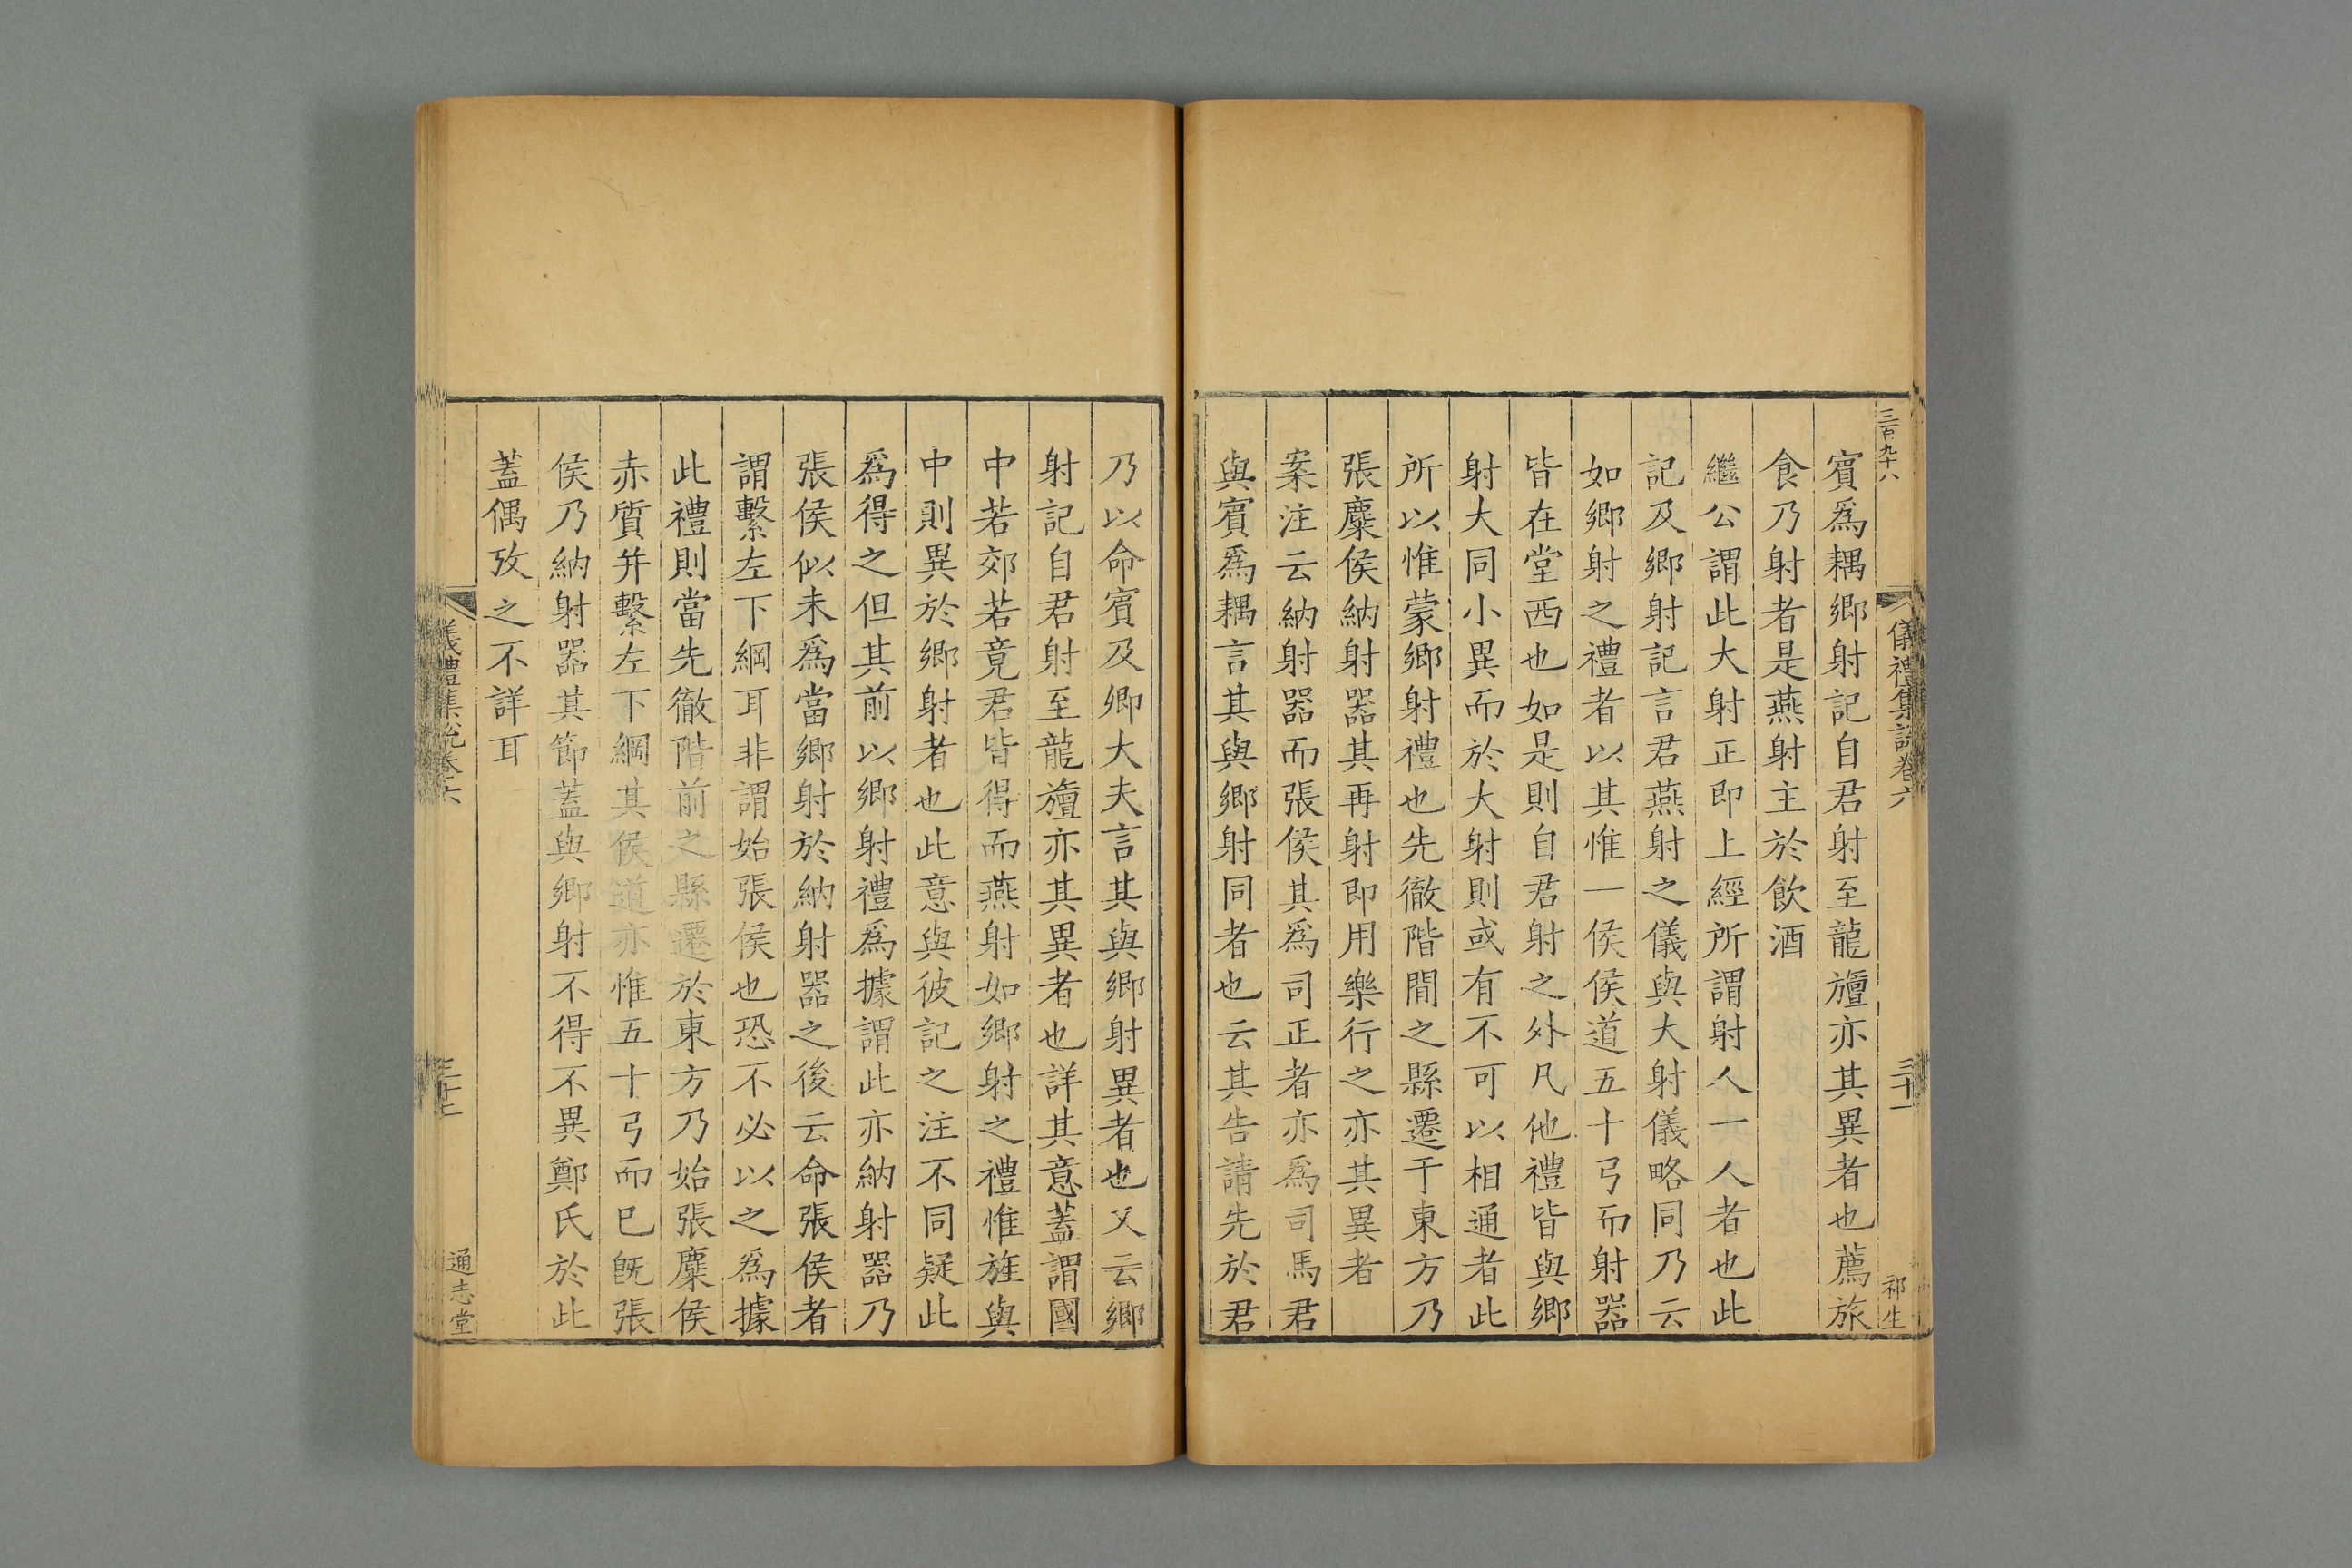 三百九十八
儀禮集說卷六
三十一
祁生
賔爲耦鄉射記自君射至龍旜亦其異者也薦旅
食乃射者是燕射主於飲酒
繼公謂此大射正即上經所謂射人一人者也此
記及鄉射記言君燕射之儀與大射儀略同乃云
如鄉射之禮者以其惟一侯侯道五十弓而射器
皆在堂西也如是則自君射之外凡他禮皆與鄉
射大同小異而於大射則或有不可以相通者此
所以惟蒙鄉射禮也先徹階間之縣遷于東方乃
張麋侯納射器其再射即用樂行之亦其異者
案注云納射器而張侯其爲司正者亦爲司馬君
與賔爲耦言其與鄉射同者也云其告請先於君
乃以命賔及卿大夫言其與鄉射異者也又云鄉
射記自君射至龍旜亦其異者也詳其意蓋謂國
中若郊若竟君皆得而燕射如鄉射之禮惟旌與
中則異於鄉射者也此意與彼記之注不同疑此
爲得之但其前以鄉射禮爲據謂此亦納射器乃
張侯似未爲當鄉射於納射器之後云命張侯者
謂繫左下綱耳非謂始張侯也恐不必以之爲據
此禮則當先徹階前之縣遷於東方乃始張麋侯
赤質并繫左下綱其侯道亦惟五十弓而巳旣張
侯乃納射器其節蓋與鄉射不得不異鄭氏於此
蓋偶攷之不詳耳
儀禮集說卷六
通志堂